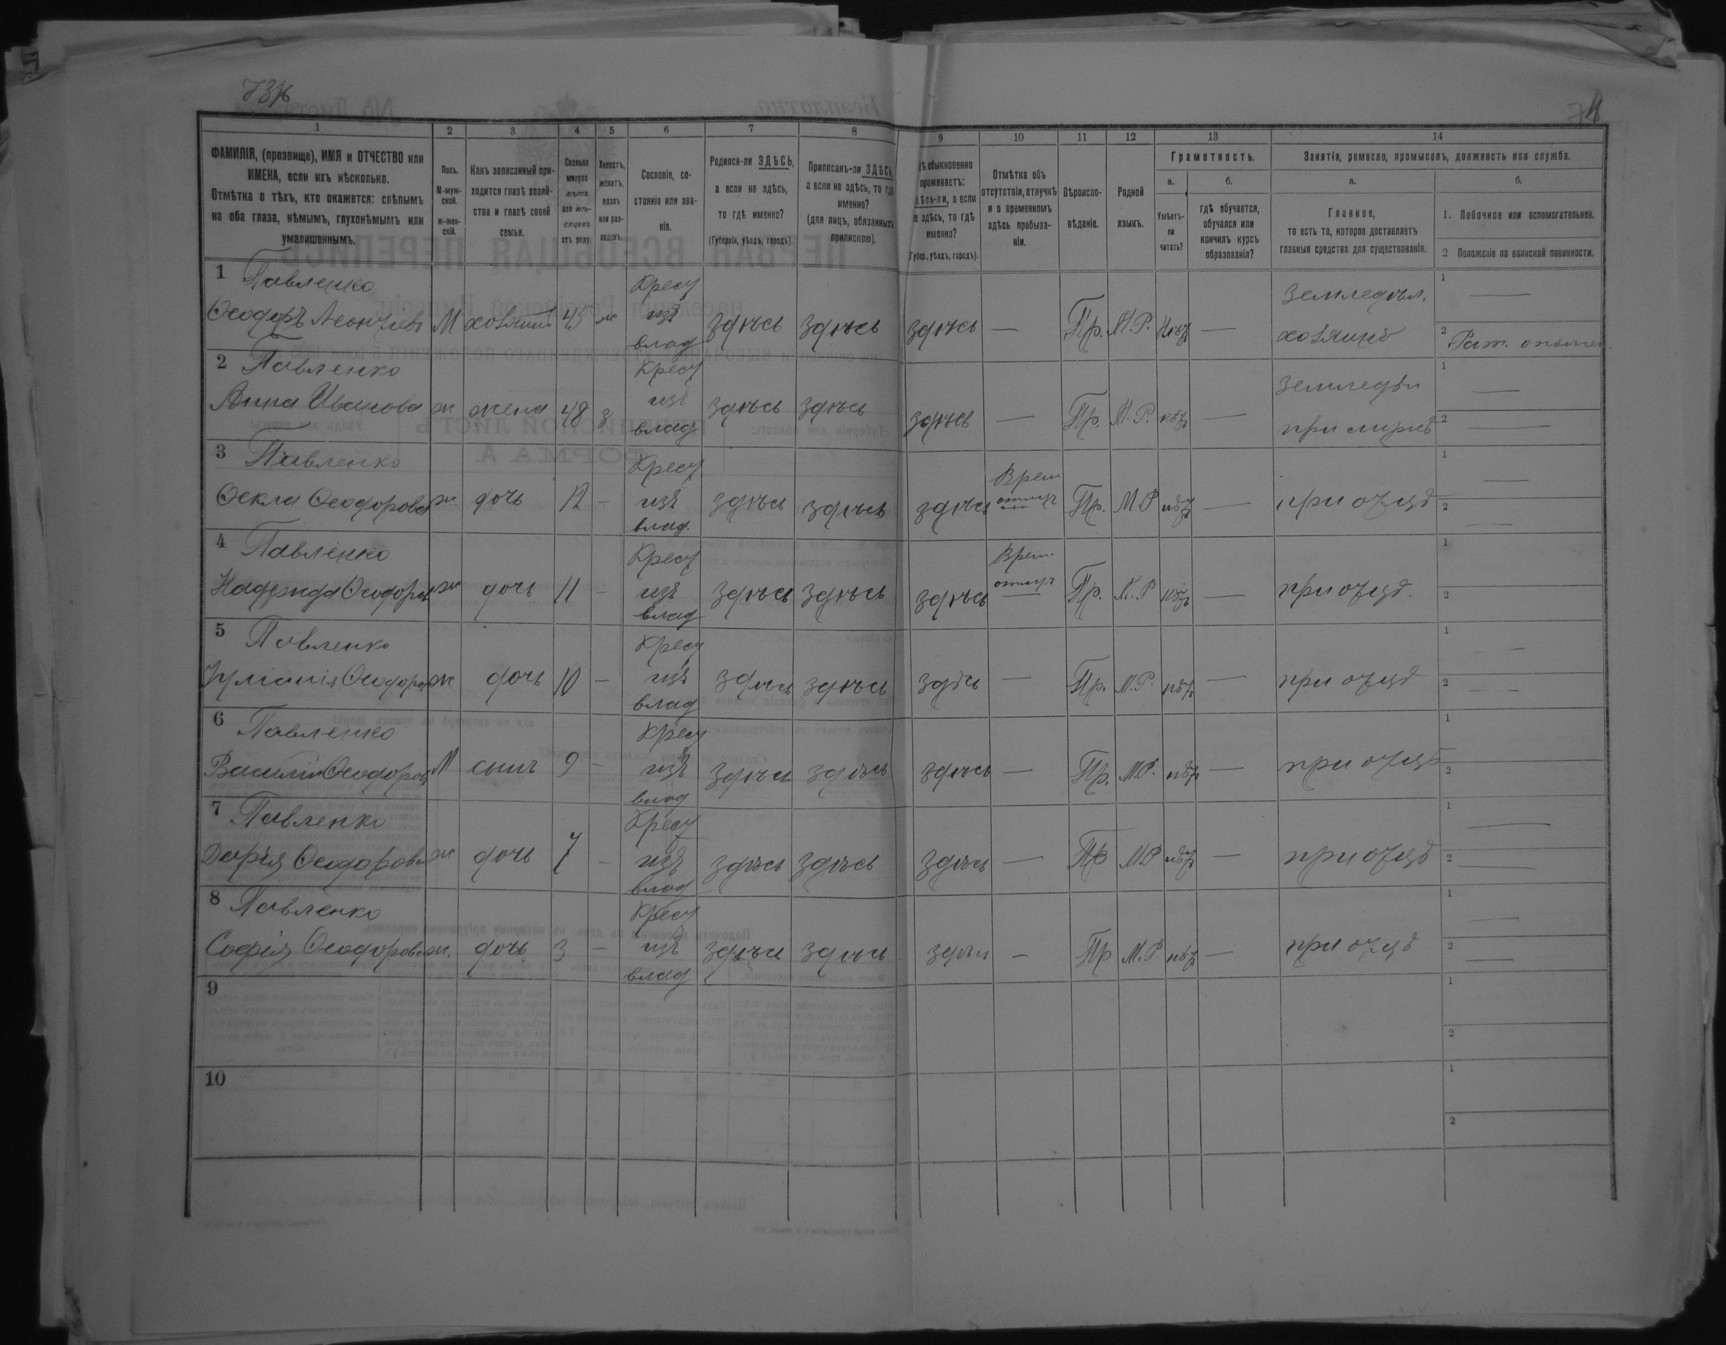 1 2 3 4 5 6 7 8 9 10 11 12 13 14
ФАМИЛІЯ, (прозвище), ИМЯ и ОТЧЕСТВО или
ИМЕНА, если ихъ нѣсколько.
Отмѣтка о тѣхъ, кто окажется: слѣпымъ
на оба глаза, нѣмымъ, глухонѣмымъ или
умалишеннымъ.
Полъ.
М-муж-
ской.
Ж-жен-
скій.
Какъ записанный при-
ходится главѣ хозяй-
ства и главѣ своей
семьи.
Сколько
минуло
лѣтъ
или мѣ-
сяцевъ
отъ роду.
Холостъ,
женатъ,
вдовъ
или раз-
веденъ.
Сословіе, со-
стояніе или зва-
ніе.
Родился-ли ЗДѢСЬ,
а если не здѣсь,
то гдѣ именно?
(Губернія, уѣздъ, городъ).
Приписанъ-ли ЗДѢСЬ,
а если не здѣсь, то гдѣ
именно?
(для лицъ, обязанныхъ
припискою).
обыкновенно
проживаетъ:
здѣсь-ли, а если
не здѣсь, то гдѣ
именно?
(Губер., уѣздъ, городъ).
Отмѣтка объ
отсутствіи, отлучкѣ
и о временномъ
здѣсь пребыва-
ніи.
Вѣроиспо-
вѣданіе.
Родной
языкъ.
Грамотность.
а.
Умѣетъ-
ли
читать?
б.
гдѣ обучается,
обучался или
кончилъ курсъ
образованія?
Занятіе, ремесло, промыселъ, должность или служба.
а.
Главное,
то есть то, которое доставляетъ
главныя средства для существованія.
б.
1. Побочное или вспомогательное.
2 Положеніе по воинской повинности.
1 Павленко
Ѳеодоръ Леонтіевъ М хозяинъ 45 ж Крест изъ влад здѣсь здѣсь здѣсь — Пр. М.Р. — земледѣл. хозяинъ 1 — 2 Рат.
2 Павленко
Анна Иванова ж жена 48 з Крест изъ влад здѣсь здѣсь здѣсь — Пр. М.Р. нѣтъ — земледѣл при мужѣ 1 — 2 —
3 Павленко
Ѳекла Ѳеодорова ж дочь 12 – Крест изъ влад. здѣсь здѣсь здѣсь Врем отлуч Пр. М.Р нѣтъ — при отцѣ 1 — 2 —
4 Павленко
Надежда Ѳеодоров ж дочь 11 – Крест изъ влад здѣсь здѣсь здѣсь Врем. отлуч Пр. М.Р нѣтъ — при отцѣ. 1 2
5 Павленко
Ѳеодоров ж дочь 10 – Крест изъ влад здѣсь здѣсь здѣсь — Пр. М.Р. нѣтъ — при отцѣ 1 — 2 —
6 Павленко
Василій Ѳеодоров М сынъ 9 – Крест изъ влад здѣсь здѣсь здѣсь — Пр. М.Р. нѣтъ — при отцѣ 1 2
7 Павленко
Дарія Ѳеодорова ж дочь 7 – Крест изъ влад здѣсь здѣсь здѣсь — Пр М.Р нѣтъ — при отцѣ 1 — 2 —
8 Павленко
Софія Ѳеодорова ж. дочь 3 – Крест изъ влад здѣсь здѣсь здѣсь – Пр М.Р. нѣтъ — при отцѣ 1 — 2 —
9 1 2
10 1 2